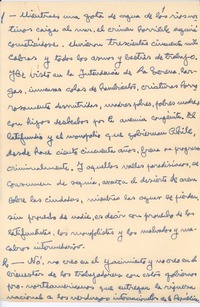 1 — Mientras una gota de agua de los rios nor-
tinos caiga al mar, el crimen horrible seguirá
cometiéndose. Murieron trescientos cincuenta mil
cabras y todos los asnos y bestias de trabajo.
Yo visto en la Intendencia de La Serena, Var-
gas, inmensas colas de hambrientos, criaturas horro-
rosamente desnutridas, madres pobres, pobres madres
con hijos deshechos por la avería corriente. El
latifundio y el monopolio que gobiernan Chile,
desde hace ciento cincuenta años, frena su progreso
criminalmente. Y aquellos valles paradisíacos, se
consumen de sequía, avanza el desierto de arena
sobre las ciudades, mientras las aguas se pierden
sin provecho de nadie, es decir con provecho de los
latifundistas, los monopolistas y los malvados y ma-
cabros intermediarios.
2 — No, no creo en el yacimiento y no creo en el
bienestar de los trabajadores con estos gobiernos
pro-norteamericanos que entregan la riqueza
nacional a los verdugos internacionales de la Revolución